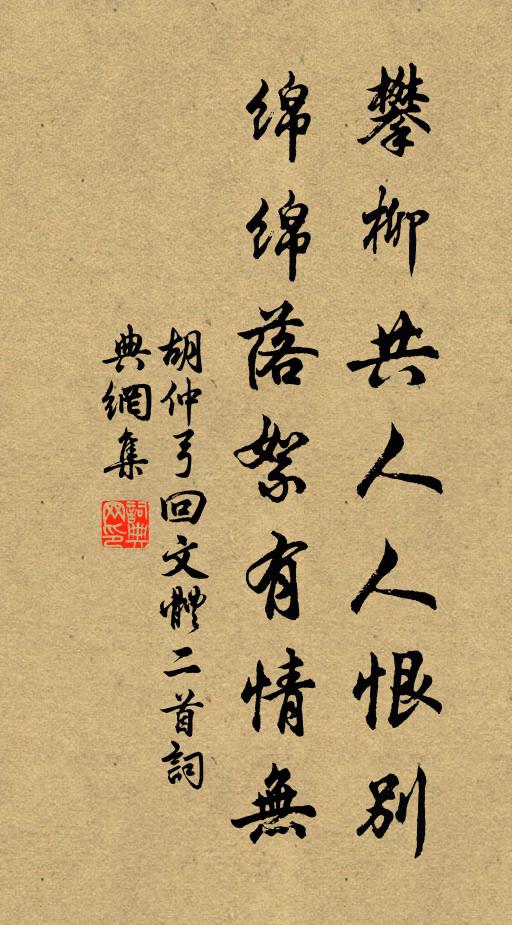 攀柳共人人恨別
绵绵落絮有情無
胡仲弓回文體二首詞
典網集
詞典網印